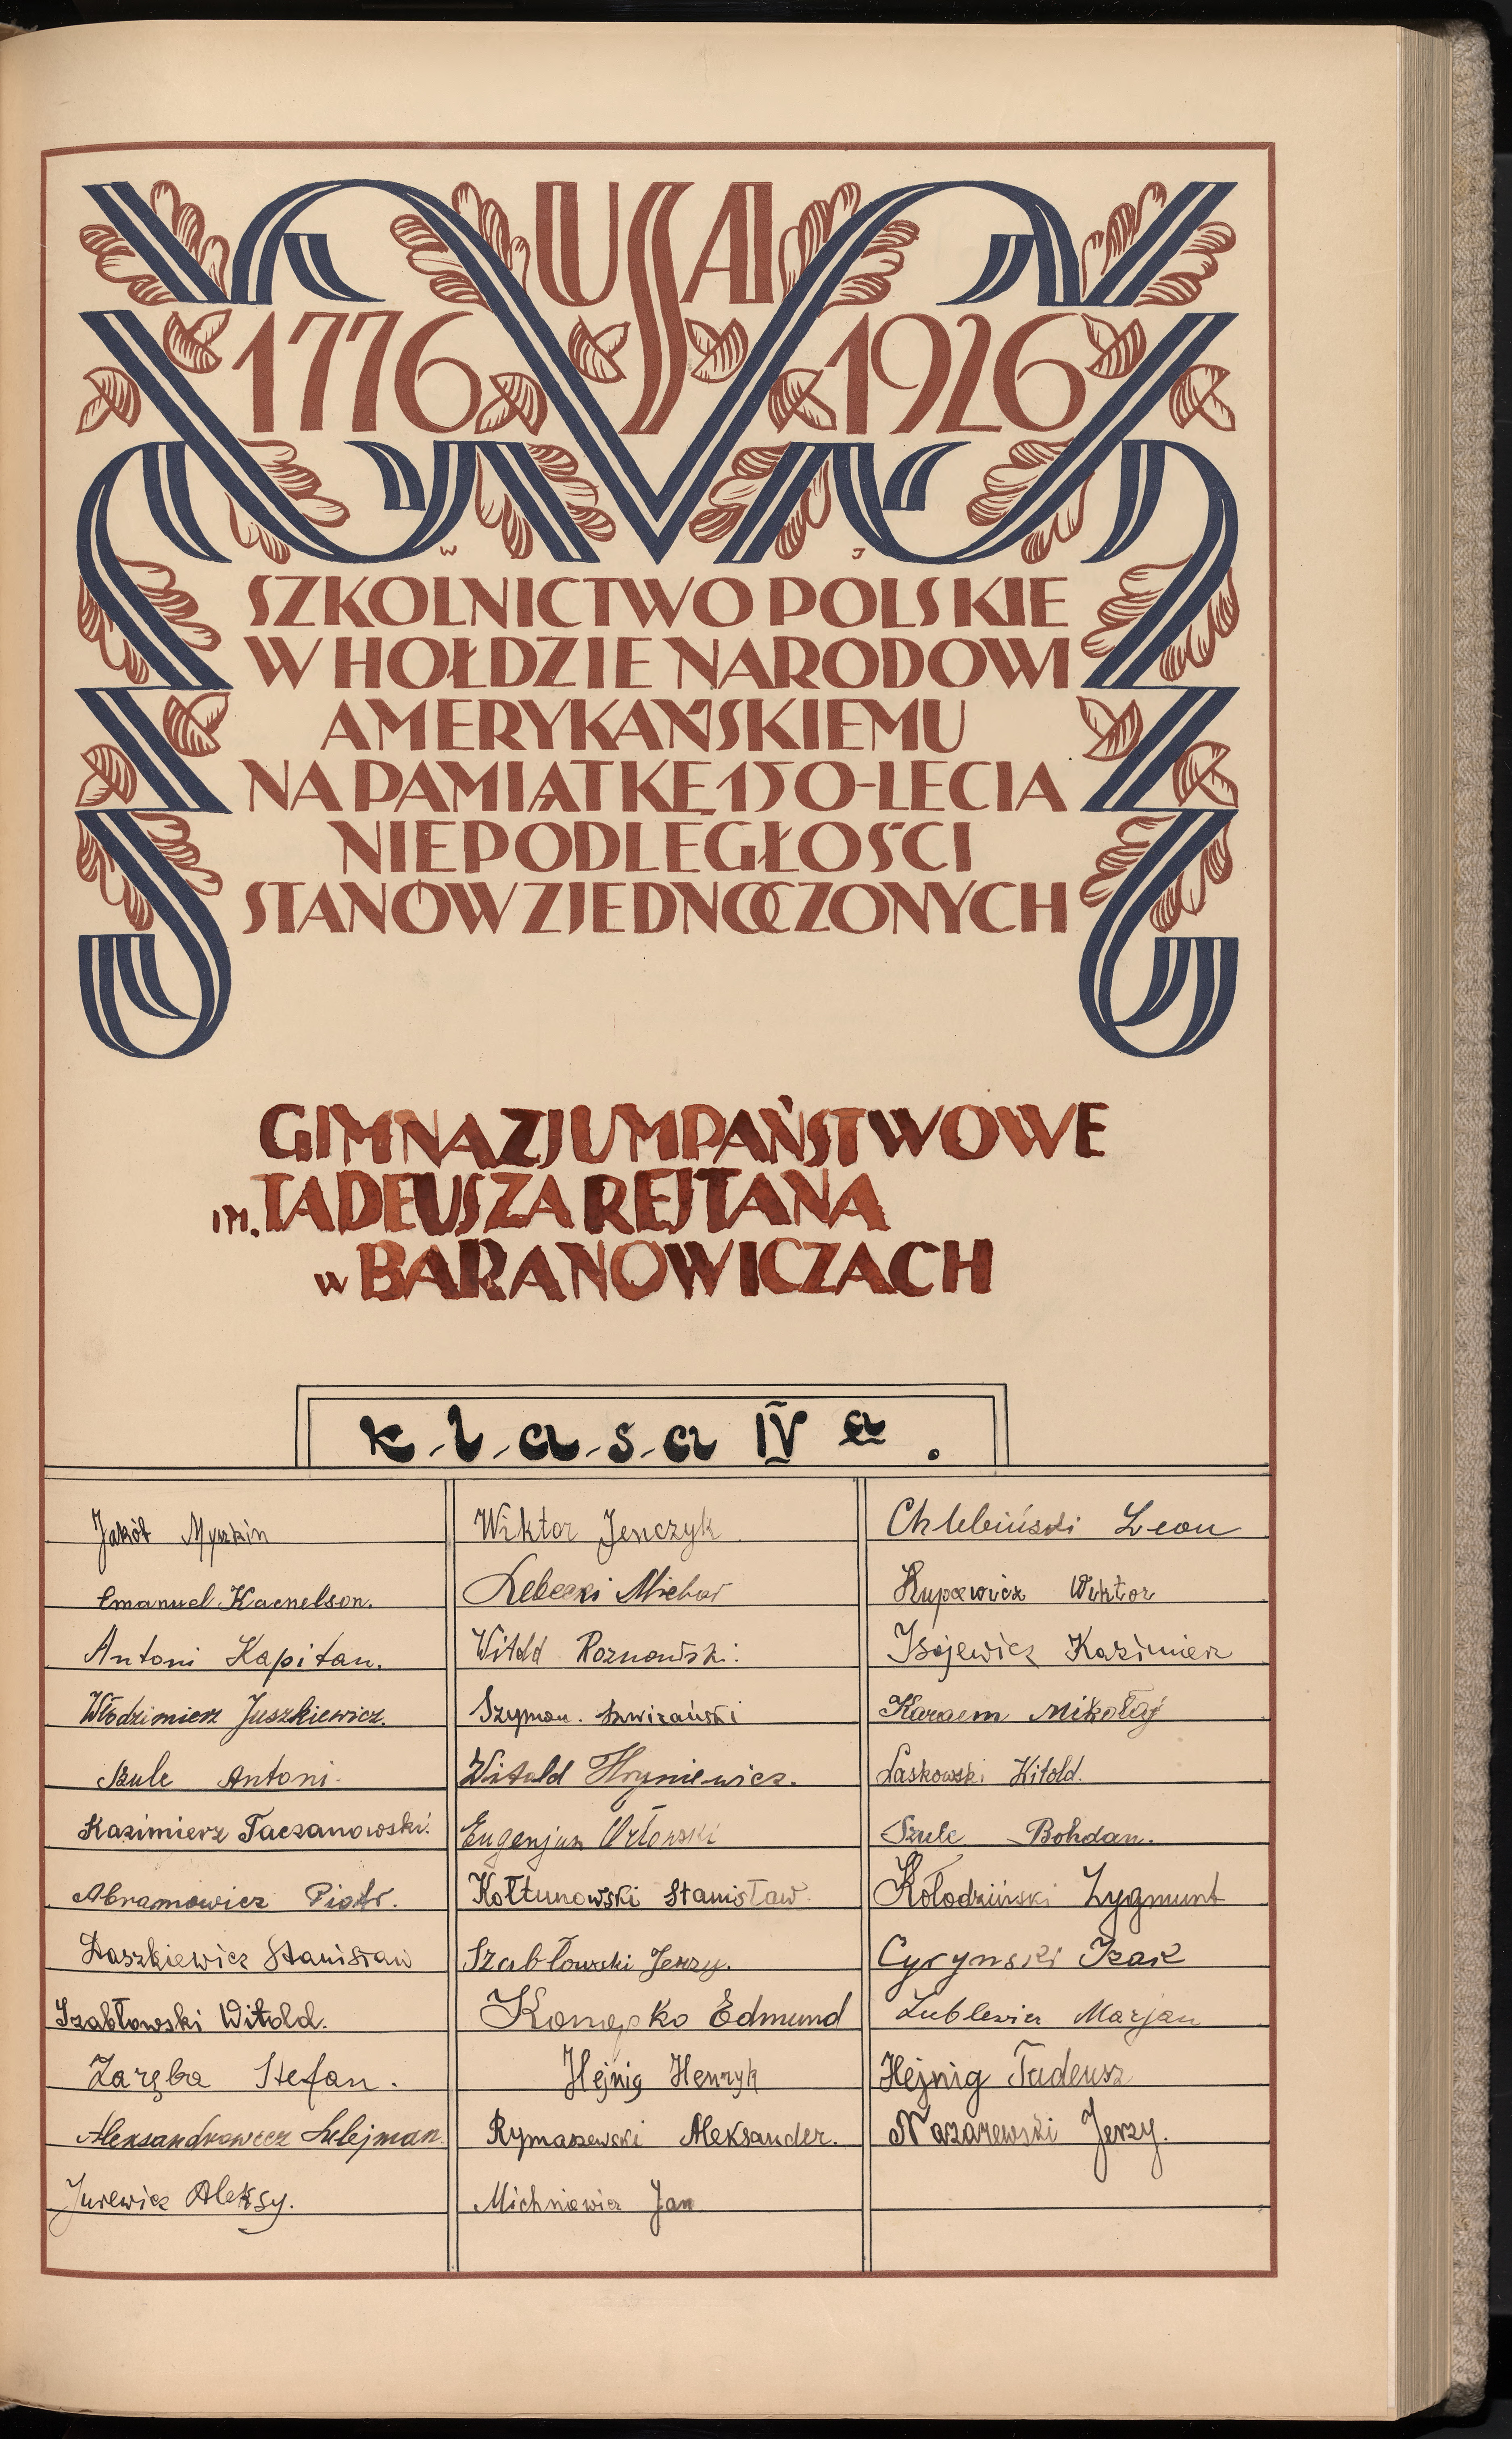 USA
1776 1926
W J
SZKOLNICTWO POLSKIE
W HOŁDZIE NARODOWI
AMERYKAŃSKIEMU
NA PAMIĄTKĘ 150-LECIA
NIEPODLEGŁOŚCI
STANÓW ZJEDNOCZONYCH
GIMNAZJUM PAŃSTWOWE
IM. TADEUSZA REJTANA
w BARANOWICZACH
k-l-a-s-a IV a.
Jakób Myszkin
Emanuel Kacnelson.
Antoni Kapitan.
Włodzimierz Juszkiewicz.
Szulc Antoni.
Kazimierz Taczanowski.
Abramowicz Piotr.
Daszkiewicz Stanisław
Szabłowski Witold.
Zaręba Stefan.
Aleksandrowicz Sulejman.
Jurewicz Aleksy.
Wiktor Jenczyk
Michał
Witold Roznowski.
Szymon.
Witold Hryniewicz.
Eugenjusz Orłowski
Kołtunowski Stanisław.
Szabłowski Jerzy.
Edmund
Hejnig Henryk
Rymaszewski Aleksander.
Michniewicz Jan
Chlebiński Leon
Wiktor
Isajewicz Kazimierz
Mikołaj
Laskowski Witold.
Szulc Bohdan.
Kołodziński Zygmunt
Cyrynski Izak
Marjan
Hejnig Tadeusz
Nazarewski Jerzy.